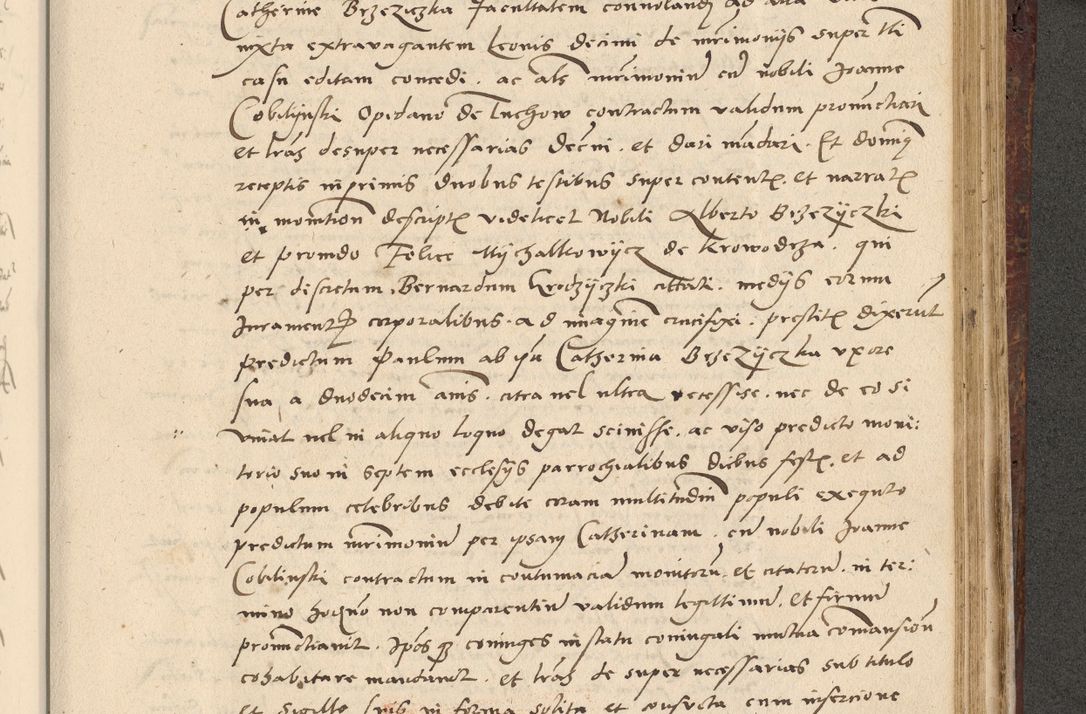 Catherine Brzeziczka facultatem convolandi ad
iuxta extravagantem Leonis decimi de mrimonijs super tli
casu editam concedi . ac als mrimoniu cu nobili Joanne
Cobilijnski Opidano de Tuchow contractum validum pronuctiari
et lras desuper necessarias decni . et dari madari . Et
receptis in primis duobus testibus super content . et narrat
in monition descript videlicet Nobili Alberto Brzezijczki
et prouido Felice Mijchalkowijcz de Krowodrza . qui
per discretum Bernardum citati . medijs eorum
Iurament corporalibus . ad imagine crucifixi . prestit dixerut
predictum Paulum ab ipsa Catherina Brzezijczka uxore
sua a duodecim anis . citra uel ultra recessisse . nec de eo si
uiuat uel in aliquo loquo degat sciuisse . ac uiso predicto moni:
torio suo in septem ecclesijs parrochialibus diebus fest . et ad
populum celebribus debite coram multitudin populi exequto
predictum mrimoniu per ipsam Catherinam . cu nobili Joanne
Cobilinski contractum in contumacia monitoru . et citatoru . in ter:
mino non comparentiu validum legittimu . et firmu
pronuctiauit . Ipos coniuges in statu coniugali mutua comansion
cohabitare mandauit . et lras de super necessarias sub titulo
et sigillo suis in forma solita et consueta cum insercione